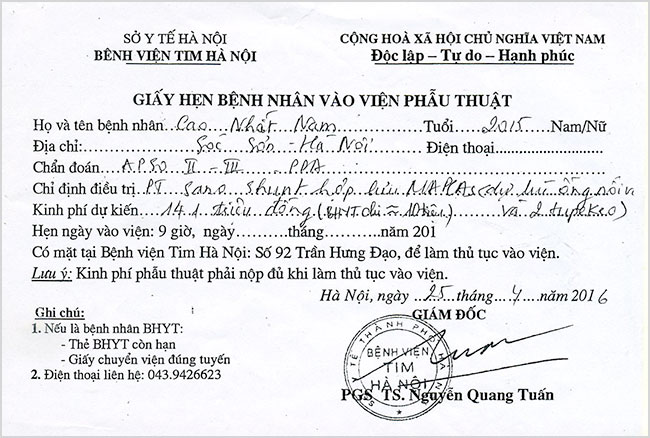 SỞ Y TẾ HÀ NỘI
BỆNH VIỆN TIM HÀ NỘI
CỘNG HOÀ XÃ HỘI CHỦ NGHĨA VIỆT NAM
Độc lập – Tự do – Hạnh phúc
GIẤY HẸN BỆNH NHÂN VÀO VIỆN PHẪU THUẬT
Họ và tên bệnh nhân Cao Nhất Nam Tuổi 2015 Nam/Nữ
Địa chỉ: Sóc Sơn - Hà Nội Điện thoại
Chẩn đoán APSO II - III PDA
Chỉ định điều trị PT sano shunt hợp lưu MAPCAs (dự trù ống nối
Kinh phí dự kiến 141 triệu đồng (BHYT chi ≈ và 2
Hẹn ngày vào viện: 9 giờ, ngày tháng năm 201
Có mặt tại Bệnh viện Tim Hà Nội: Số 92 Trần Hưng Đạo, để làm thủ tục vào viện.
Lưu ý: Kinh phí phẫu thuật phải nộp đủ khi làm thủ tục vào viện.
Hà Nội, ngày 25 tháng 4 năm 2016
GIÁM ĐỐC
Ghi chú:
1. Nếu là bệnh nhân BHYT:
- Thẻ BHYT còn hạn
- Giấy chuyển viện đúng tuyến
2. Điện thoại liên hệ: 043.9426623
SỞ Y TẾ THÀNH PHỐ HÀ NỘI
BỆNH VIỆN
TIM
HÀ NỘI
PGS TS. Nguyễn Quang Tuấn